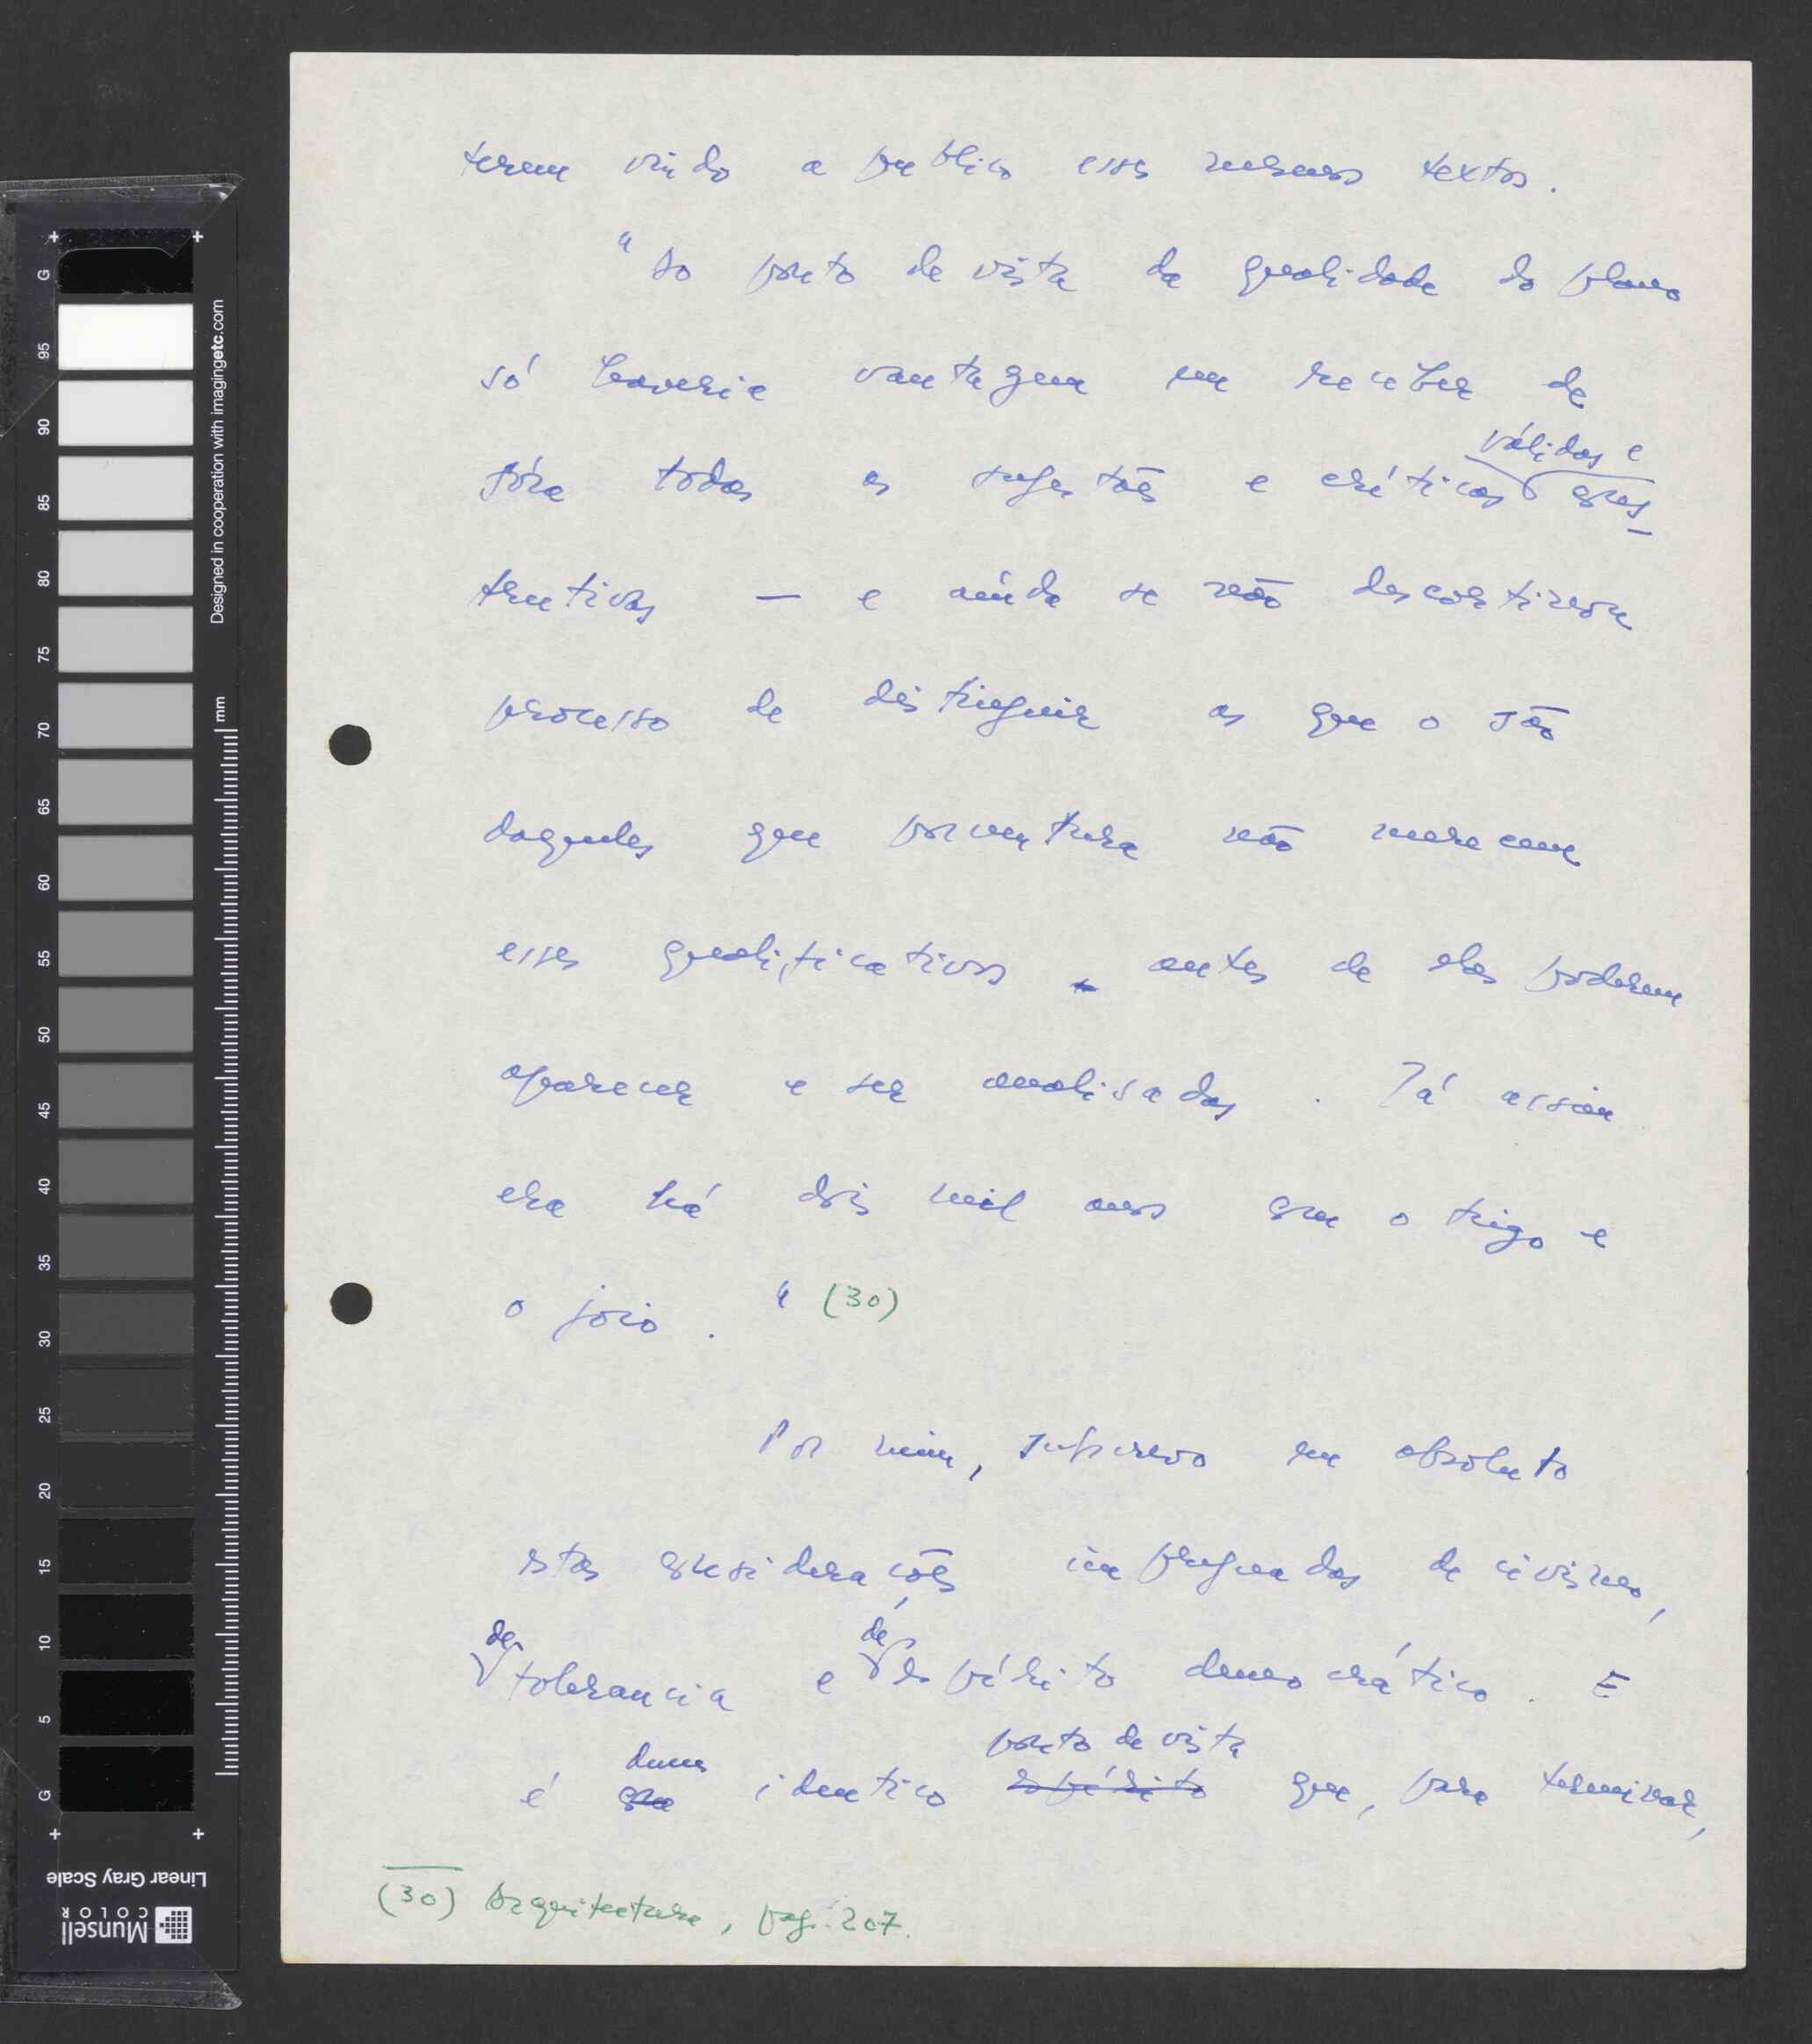 terem vindo a publico esses mesmos textos.
"Do ponto de vista da qualidade do plano
só haveria vantagem em receber de
válidas e
fóra todas as sugestões e críticas cons-
trutivas — e ainda se não descortinou
processo de distinguir as que o são
daquelas que porventura não merecem
esses qualificativos antes de elas poderem
aparecer e ser analisadas. Já assim
era há dois mil anos com o trigo e
o joio." (30)
Por mim, subscrevo em absoluto
estas considerações impregnadas de civismo,
de de
tolerancia e espírito democrático. E
dum ponto de vista
é com identico espírito que, para terminar,
(30) Arquitectura, pag. 207.
G
95
90
85
80
75
70
65
60
55
50
45
40
35
30
25
20
15
10
5
G
Designed in cooperation with imagingetc.com
mm
Linear Gray Scale
Munsell
COLOR